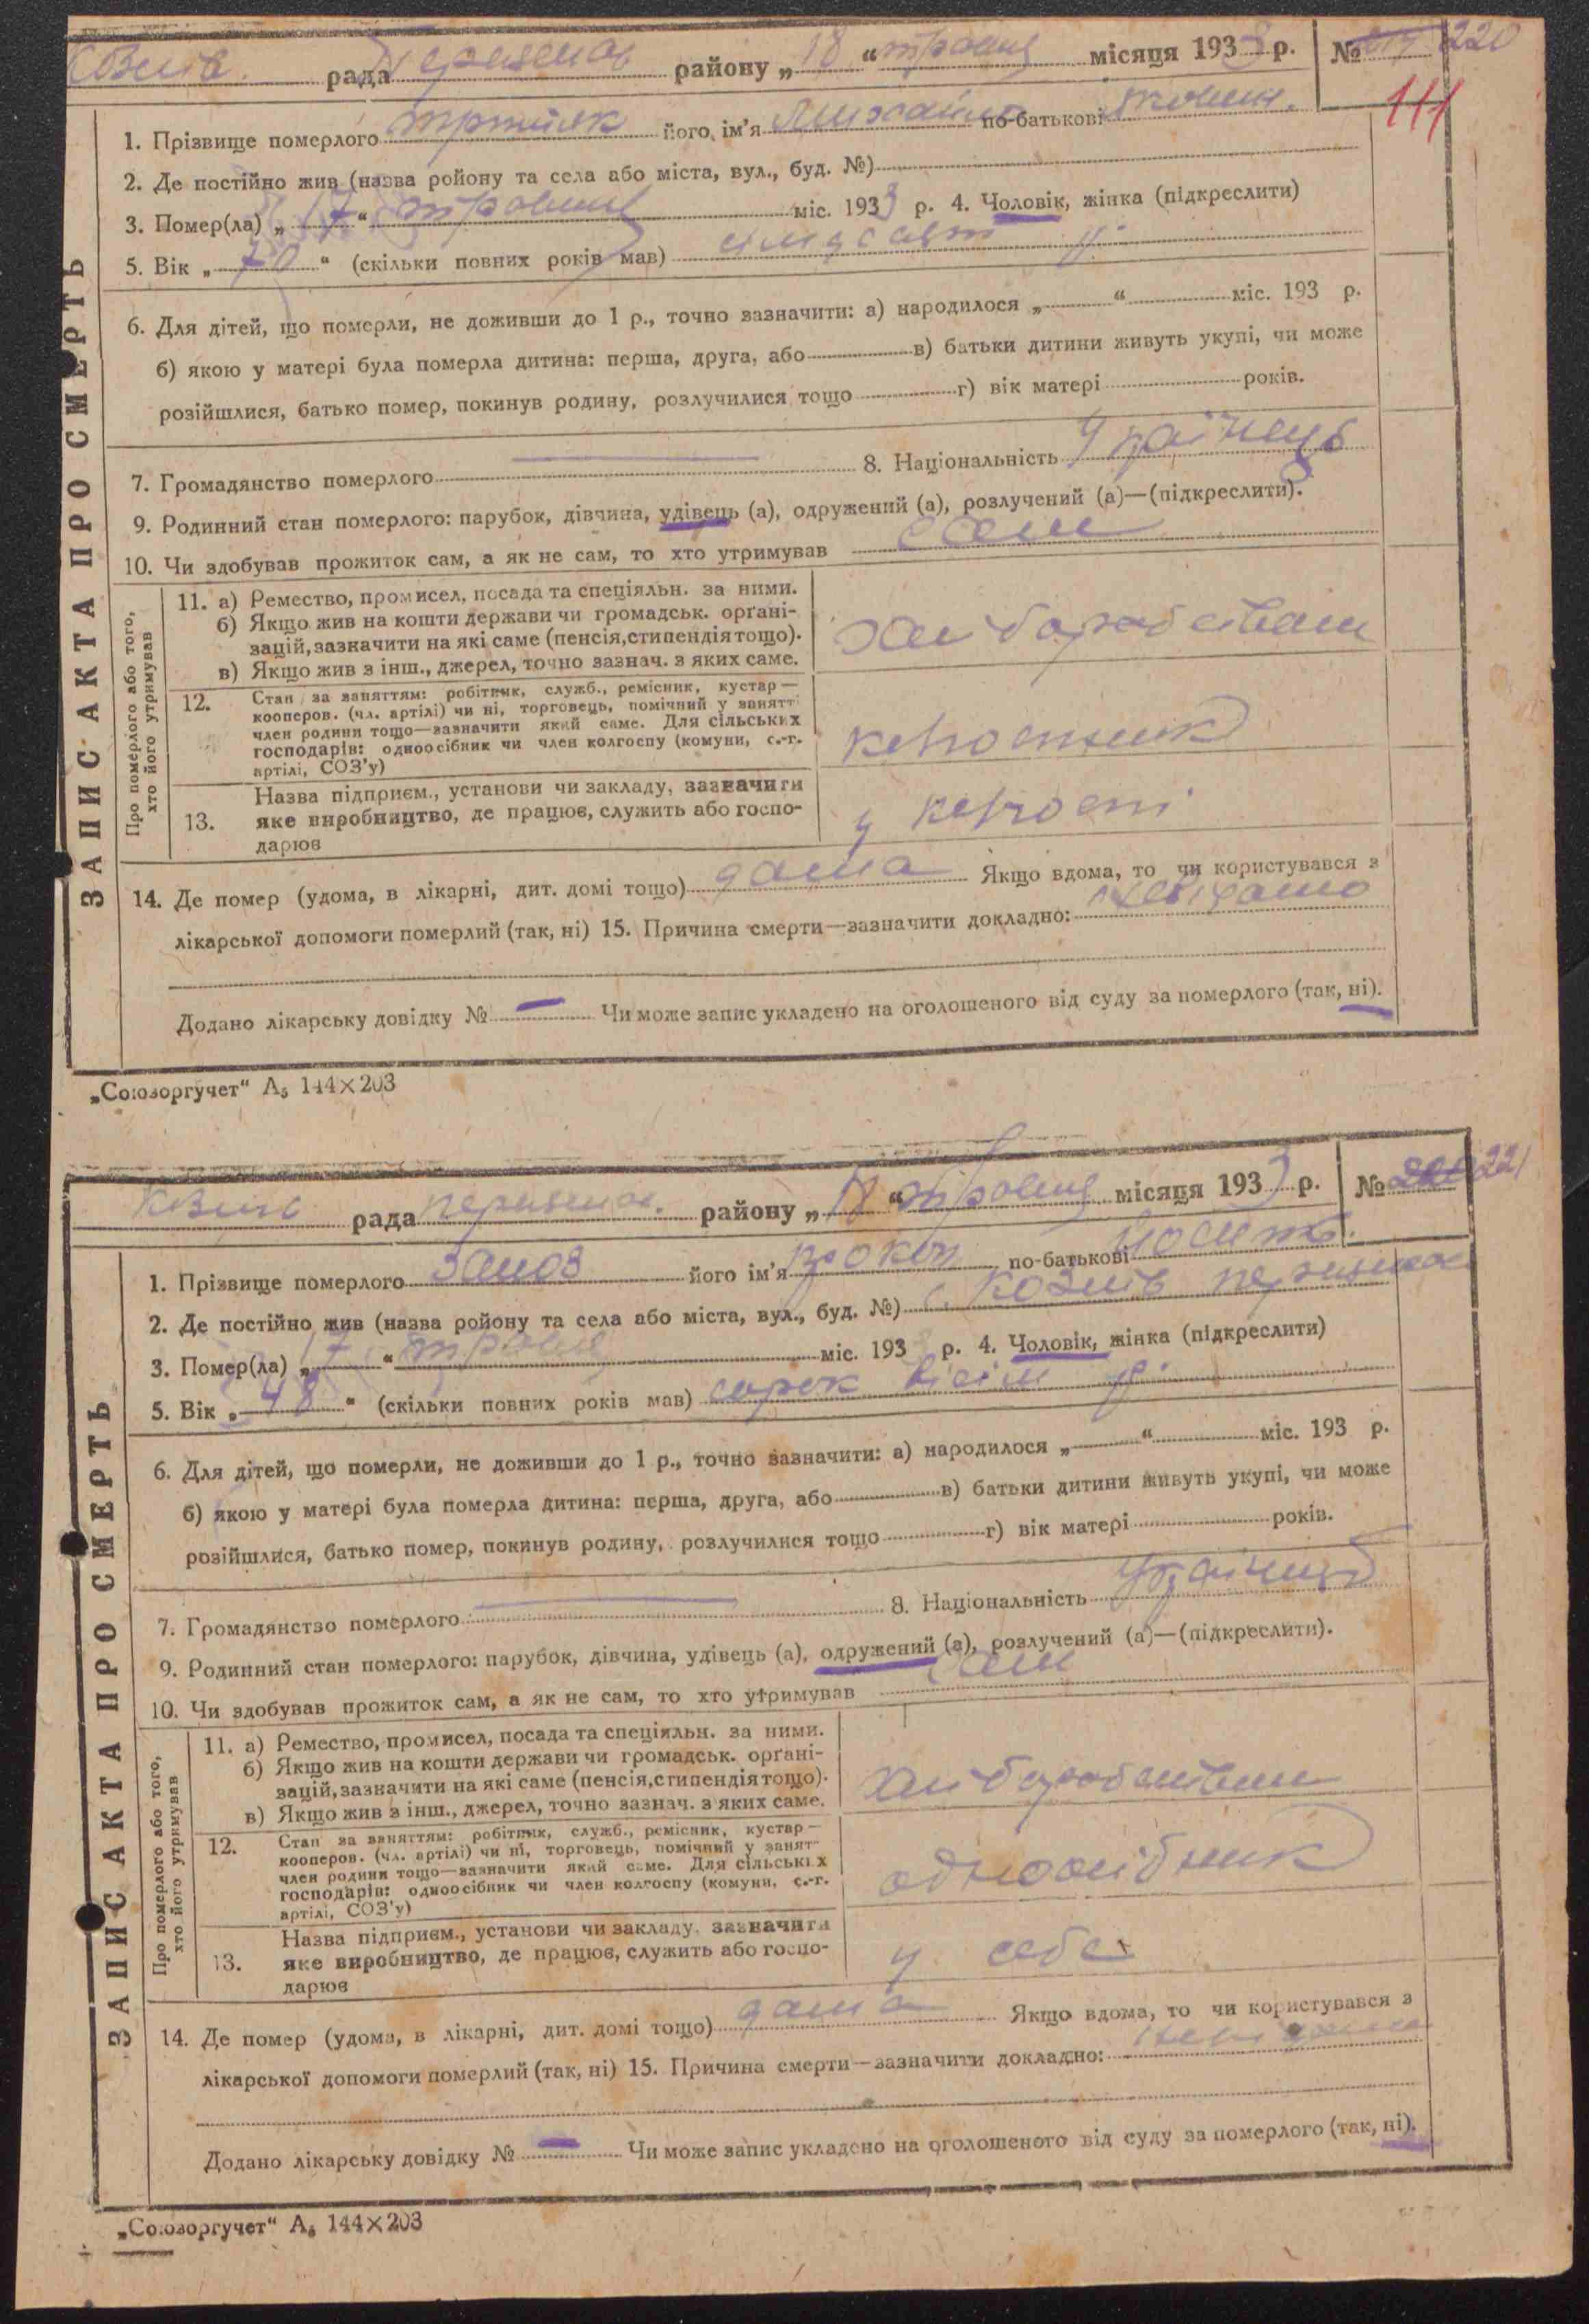 рада района „18“ травня місяця 1933 р. № 220
111
1. Прізвище померлого його ім'я Михайло по-батькові
2. Де постійно жив (назва ройону та села або міста, вул., буд. №)
3. Помер(ла) „17“ травня міс. 1933 р. 4. Чоловік, жінка (підкреслити)
5. Вік „70“ (скільки повних років мав) сімдесят р.
6. Для дітей, що померли, не доживши до 1 р., точно зазначити: а) народилося „ “ міс. 193 р.
б) якою у матері була померла дитина: перша, друга, або в) батьки дитини живуть укупі, чи може
розійшлися, батько помер, покинув родину, розлучилися тощо г) вік матері років.
7. Громадянство померлого 8. Національність Українець
9. Родинний стан померлого: парубок, дівчина, удівець (а), одружений (а), розлучений (а)—(підкреслити).
10. Чи здобував прожиток сам, а як не сам, то хто утримував сам
Про померлого або того, хто його утримував
11. а) Ремество, промисел, посада та спеціяльн. за ними.
б) Якщо жив на кошти держави чи громадськ. орґані-
зацій, зазначити на які саме (пенсія, стипендія тощо).
в) Якщо жив з інш., джерел, точно зазнач. з яких саме.
хліборобством
12. Стан за заняттям: робітник, служб., ремісник, кустар—
кооперов. (чл. артілі) чи ні, торговець, помічний у занятт
член родини тощо—зазначити який саме. Для сільських
господарів: одноосібник чи член колгоспу (комуни, с.-г.
артілі, СОЗ'у)
колгоспник
13. Назва підприєм., установи чи закладу, зазначити
яке виробництво, де працює, служить або госпо-
дарює
у колгоспі
14. Де помер (удома, в лікарні, дит. домі тощо) дома Якщо вдома, то чи користувався з
лікарської допомоги померлий (так, ні) 15. Причина смерти—зазначити докладно: невідомо
Додано лікарську довідку № — Чи може запис укладено на оголошеного від суду за померлого (так, ні).
ЗАПИС АКТА ПРО СМЕРТЬ
„Союзоргучет“ А₅ 144×203
рада району „18“ травня місяця 1933 р. № 221
1. Прізвище померлого його ім'я Прокоп по-батькові
2. Де постійно жив (назва ройону та села або міста, вул., буд. №) с.
3. Помер(ла) „17“ травня міс. 193 р. 4. Чоловік, жінка (підкреслити)
5. Вік „48“ (скільки повних років мав) сорок вісім р.
6. Для дітей, що померли, не доживши до 1 р., точно зазначити: а) народилося „ “ міс. 193 р.
б) якою у матері була померла дитина: перша, друга, або в) батьки дитини живуть укупі, чи може
розійшлися, батько помер, покинув родину, розлучилися тощо г) вік матері років.
7. Громадянство померлого 8. Національність Українець
9. Родинний стан померлого: парубок, дівчина, удівець (а), одружений (а), розлучений (а)—(підкреслити).
10. Чи здобував прожиток сам, а як не сам, то хто утримував сам
Про померлого або того, хто його утримував
11. а) Ремество, промисел, посада та спеціяльн. за ними.
б) Якщо жив на кошти держави чи громадськ. орґані-
зацій, зазначити на які саме (пенсія, стипендія тощо).
в) Якщо жив з інш., джерел, точно зазнач. з яких саме.
хліборобством
12. Стан за заняттям: робітник, служб., ремісник, кустар—
кооперов. (чл. артілі) чи ні, торговець, помічний у занят-
член родини тощо—зазначити який саме. Для сільських
господарів: одноосібник чи член колгоспу (комуни, с.-г.
артілі, СОЗ'у)
одноосібник
13. Назва підприєм., установи чи закладу, зазначити
яке виробництво, де працює, служить або госпо-
дарює
у себе
14. Де помер (удома, в лікарні, дит. домі тощо) дома Якщо вдома, то чи користувався з
лікарської допомоги померлий (так, ні) 15. Причина смерти—зазначити докладно: невідомо
Додано лікарську довідку № — Чи може запис укладено на оголошеного від суду за померлого (так, ні).
ЗАПИС АКТА ПРО СМЕРТЬ
„Союзоргучет“ А₅ 144×203